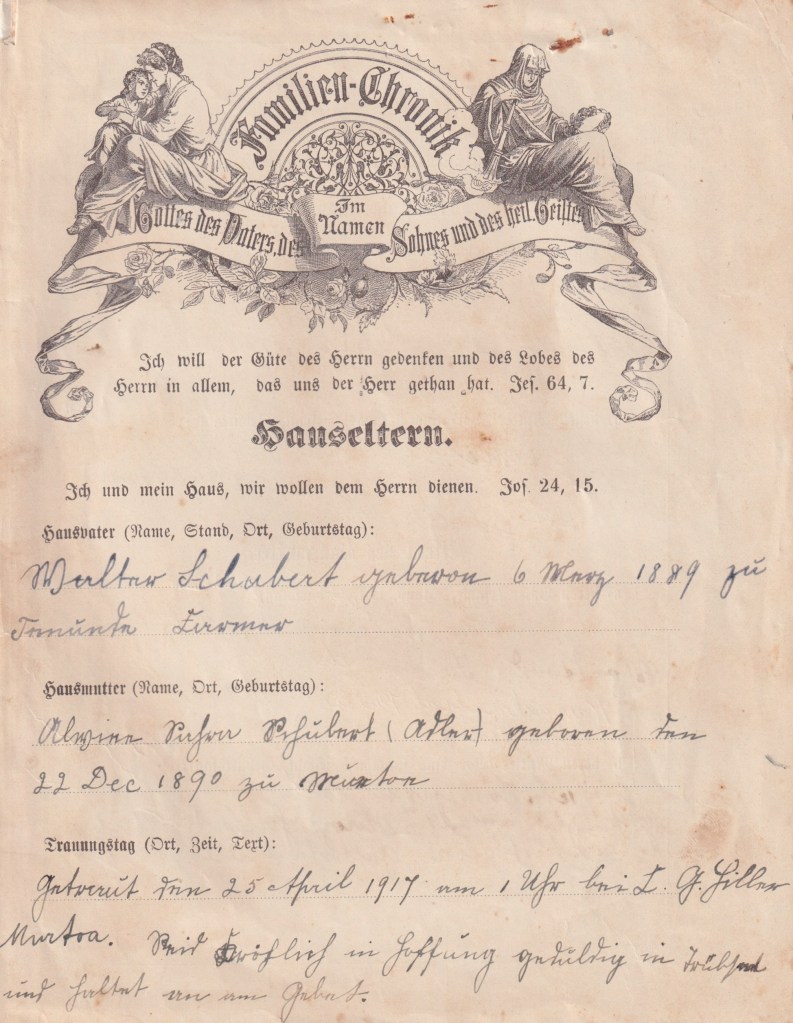 Familien-Chronik
Im Namen
Gottes des Vaters, des Sohnes und des heil. Geistes
Ich will der Güte des Herrn gedenken und des Lobes des
Herrn in allem, das uns der Herr gethan hat. Jes. 64, 7.
Hauseltern.
Ich und mein Haus, wir wollen dem Herrn dienen. Jos. 24, 15.
Hausvater (Name, Stand, Ort, Geburtstag):
Walter Schubert geboren 6 Merz 1889 zu
Farmer
Hausmutter (Name, Ort, Geburtstag):
Alvine Sahra Schubert (Adler) geboren den
22 Dec 1890 zu Murtoa
Trauungstag (Ort, Zeit, Text):
Getraut den 25 April 1917 am 1 Uhr bei L. G. Hiller
Murtoa. Seid Fröhlich in Hoffung geduldig in Trübsal
und haltet an am Gebet.